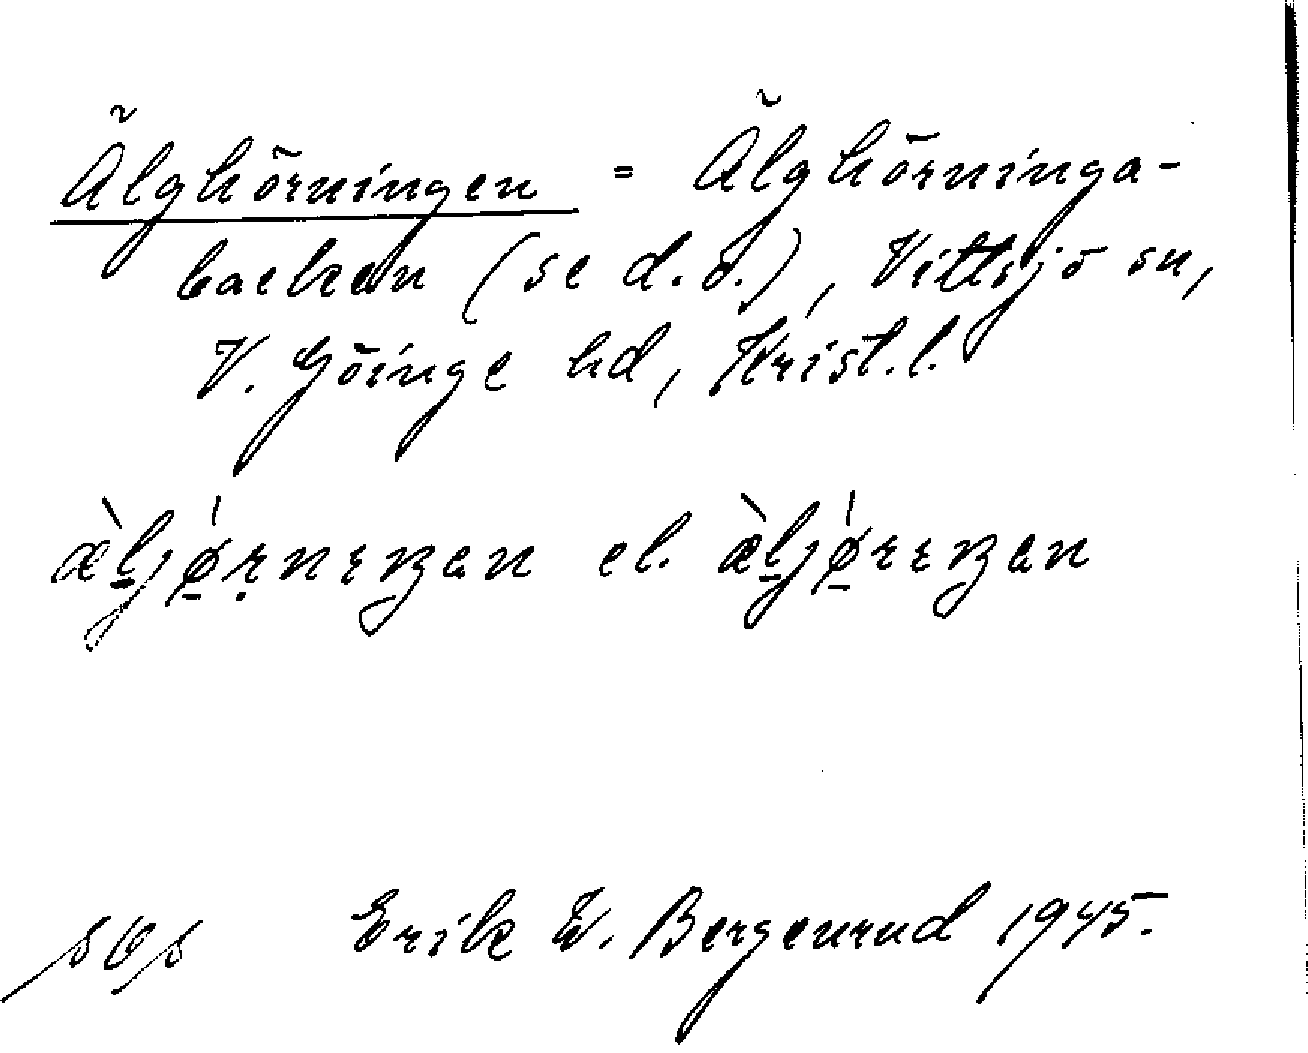 Älghörningen = Älghörninga-
backen (se d.o.), Vittsjö sn,
V. Göinge hd, Krist.l.
æ̀ljǿrnɪŋan el. æ̀ljǿrɪŋan
Erik W. Bergenrud 1945.